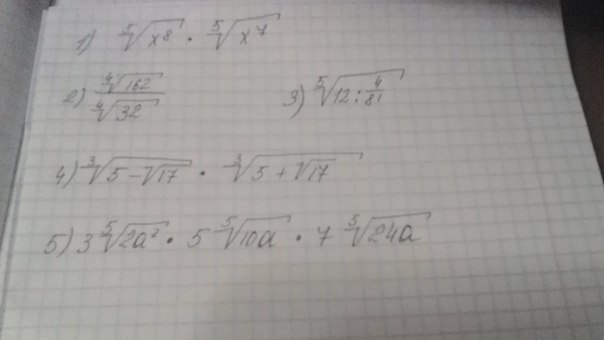 1) ⁵√x⁸ · ⁵√x⁷
2) ⁴√162 / ⁴√32 3) ⁵√12 : 4/81
4) ³√5-√17 · ³√5+√17
5) 3 ⁵√2a² · 5 ⁵√10a · 7 ⁵√24a